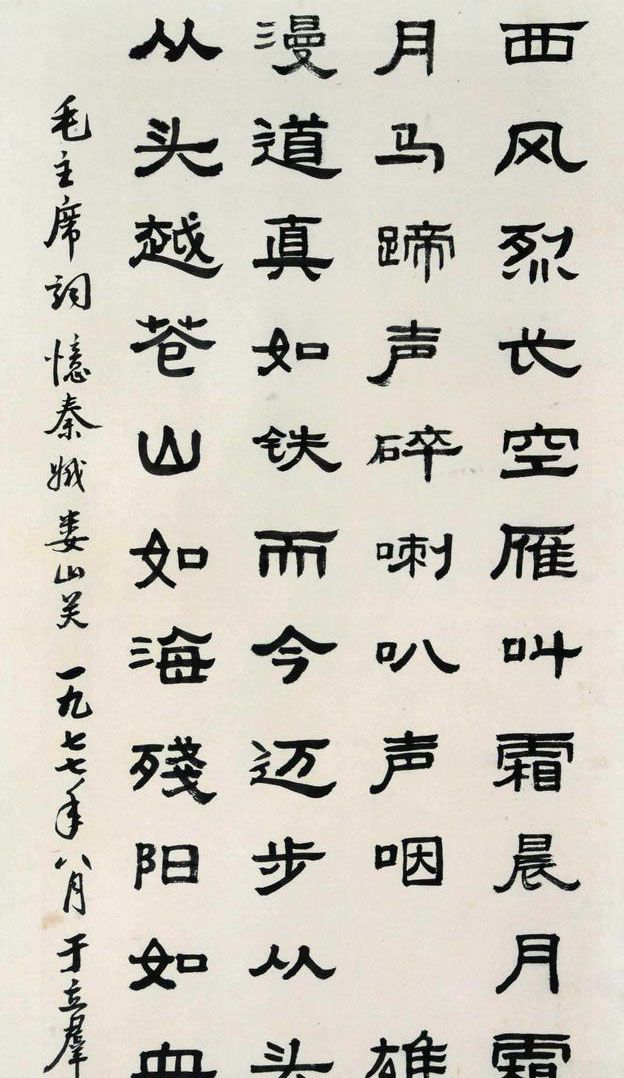 西风烈长空雁叫霜晨月霜
月马蹄声碎喇叭声咽 雄
漫道真如铁而今迈步从头
从头越苍山如海殘阳如血
毛主席詞 憶秦娥 娄山关 一九七七年八月 于立羣